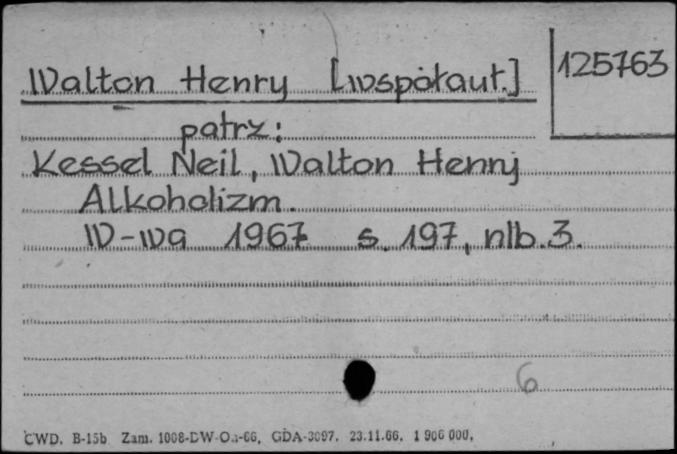 Walton Henry [współaut.]
125763
patrz:
Kessel Neil, Walton Henry
Alkoholizm.
W-wa 1967 s. 197, nlb. 3.
6
CWD. B-15b Zam. 1008-DW-Oa-66, GDA-3097. 23.11.66. 1 906 000.